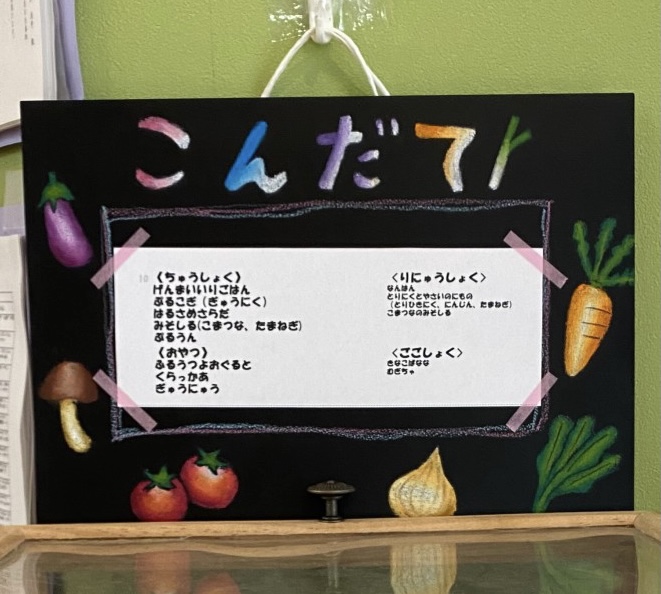 こんだて
〈ちゅうしょく〉
げんまいいりごはん
ぷるこぎ(ぎゅうにく)
はるさめさらだ
みそしる(こまつな、たまねぎ)
ぷるうん
〈おやつ〉
ふるうつよおぐると
くらっかあ
ぎゅうにゅう
〈りにゅうしょく〉
なんはん
とりにくとやさいのにもの
(とりひきにく、にんじん、たまねぎ)
こまつなのみそしる
〈ごごしょく〉
きなこばなな
むぎちゃ